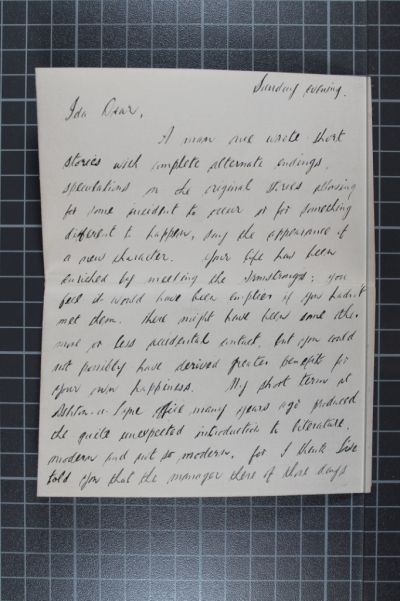 Sunday evening.
Ida Dear,
A man once wrote short
stories with complete alternate endings,
speculations on the original stories allowing
for some incident to occur or for something
different to happen, say the appearance of
a new character. Your life has been
enriched by meeting the Armstrongs: you
feel it would have been emptier if you hadn't
met them. There might have been some other
more or less accidental contact, but you could
not possibly have derived greater benefit for
your own happiness. My short term at
Ashton-u-Lyne office many years ago produced
the quite unexpected introduction to literature,
modern and not so modern, for I think I've
told you that the manager there of those days